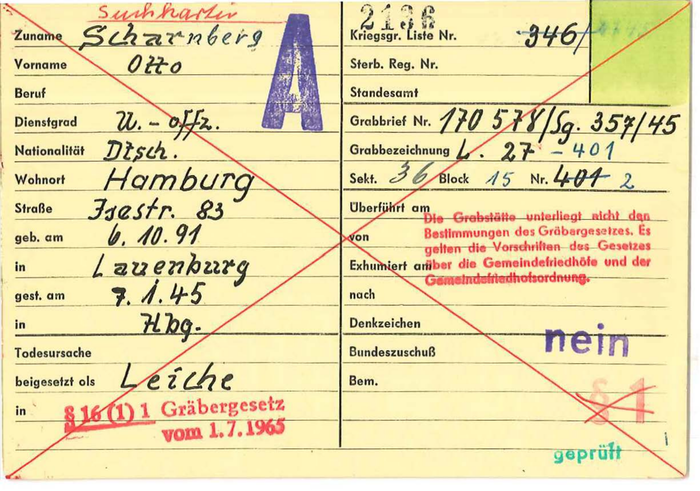 Suchkartei
Zuname Scharnberg
Vorname Otto
Beruf
Dienstgrad U.-offz.
Nationalität Dtsch.
Wohnort Hamburg
Straße Isestr. 83
geb. am 6.10.91
in Lauenburg
gest. am 7.1.45
in Hbg.
Todesursache
beigesetzt als Leiche
in
§ 16 (1) 1 Gräbergesetz
vom 1.7.1965
A
2136
Kriegsgr. Liste Nr. 346/
Sterb. Reg. Nr.
Standesamt
Grabbrief Nr. 170 578/Sg. 357/45
Grabbezeichnung L. 27 - 401
Sekt. 36 Block 15 Nr. 401 2
Überführt am
von
Exhumiert am
nach
Denkzeichen
Bundeszuschuß
Bem.
Die Grabstätte unterliegt nicht den
Bestimmungen des Gräbergesetzes. Es
gelten die Vorschriften des Gesetzes
über die Gemeindefriedhöfe und der
Gemeindefriedhofsordnung.
nein
§ 1
geprüft